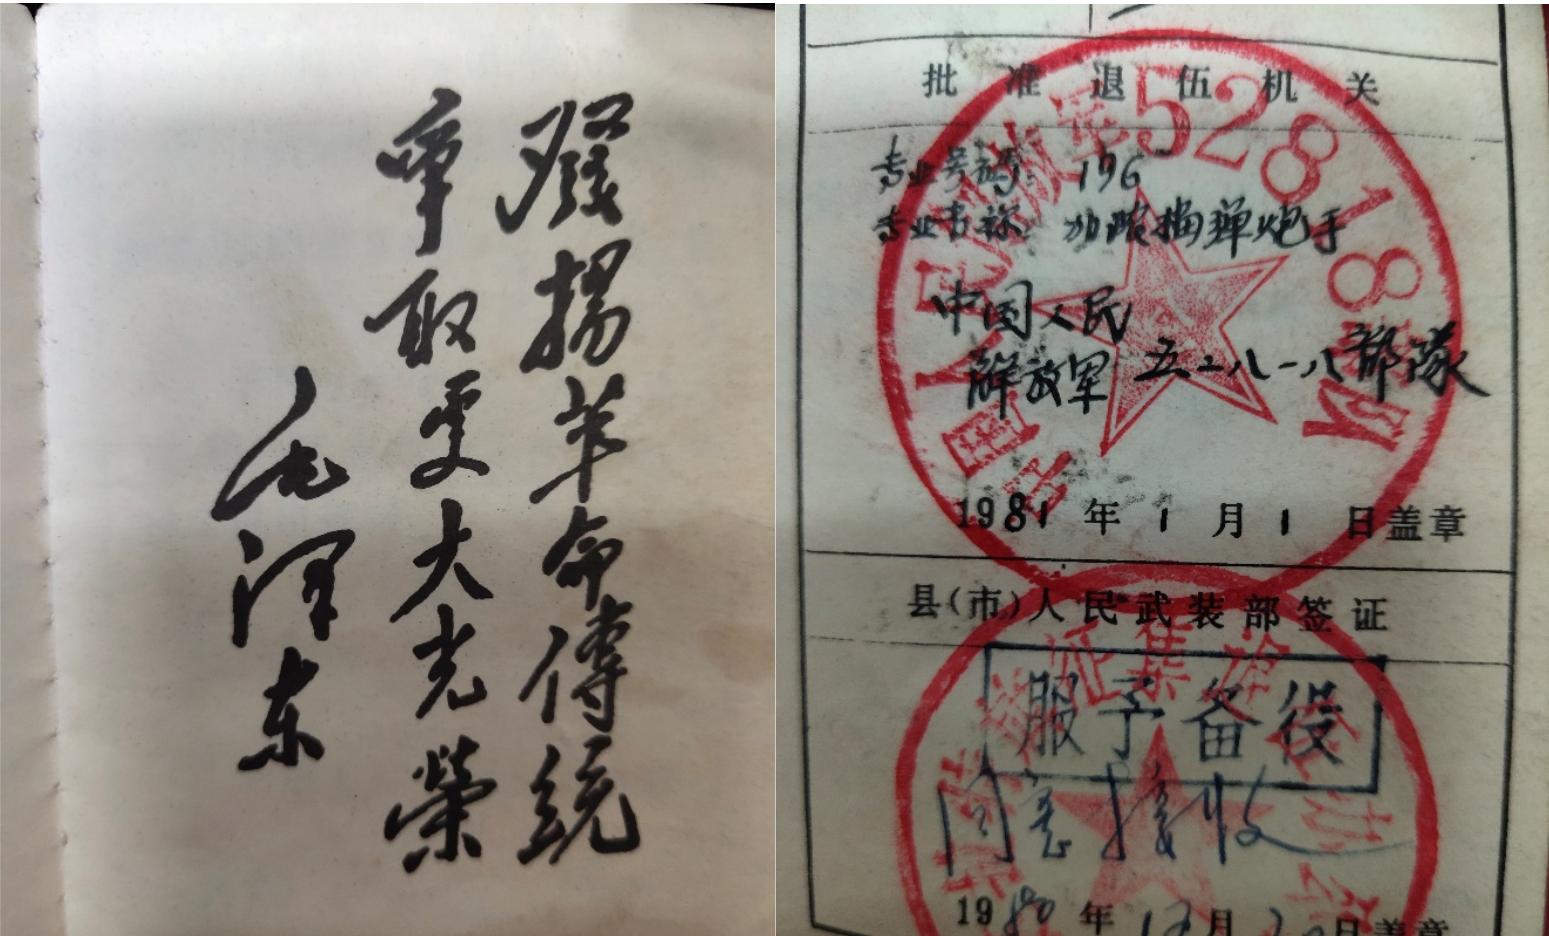 發揚革命傳統
爭取更大光榮
毛澤东
批准退伍机关
专业号码：196
专业名称：加농榴弹炮手
中国人民
解放军 五二八一八部隊
1981年1月1日盖章
中国人民解放军52818部队
县(市)人民武装部签证
服予备役
同意接收
1980年12月 日盖章